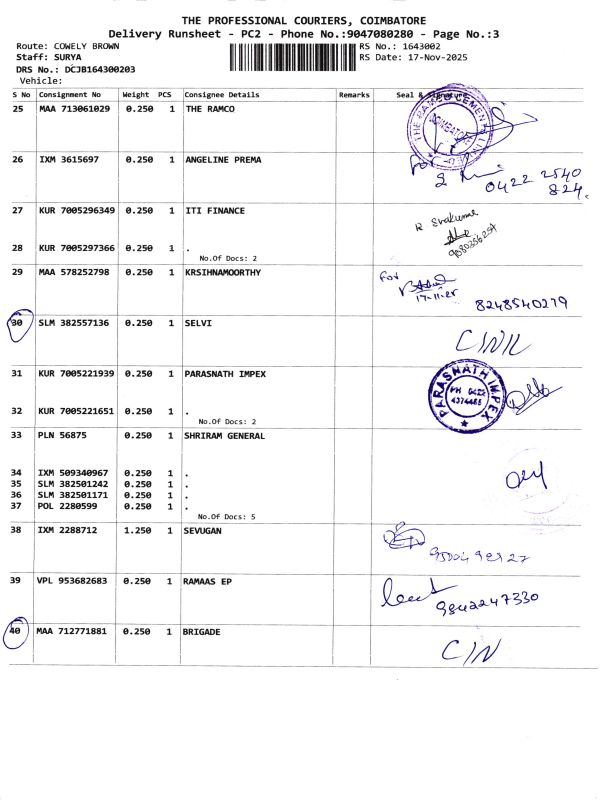 THE PROFESSIONAL COURIERS, COIMBATORE
Delivery Runsheet - PC2 - Phone No.:9047080280 - Page No.:3
Route: COWELY BROWN
RS No.: 1643002
Staff: SURYA
RS Date: 17-Nov-2025
DRS No.: DCJB164300203
Vehicle:
S No Consignment No Weight PCS Consignee Details Remarks Seal & Signature
25 MAA 713061029 0.250 1 THE RAMCO
THE RAMCO CEMENTS LIMITED
COIMBATORE
26 IXM 3615697 0.250 1 ANGELINE PREMA
for
0422 2540
824.
27 KUR 7005296349 0.250 1 ITI FINANCE
28 KUR 7005297366 0.250 1 .
No.Of Docs: 2
29 MAA 578252798 0.250 1 KRSIHNAMOORTHY
for
17-11-25
8248540279
30 SLM 382557136 0.250 1 SELVI
31 KUR 7005221939 0.250 1 PARASNATH IMPEX
PARASNATH IMPEX
PH 0422
4374465
32 KUR 7005221651 0.250 1 .
No.Of Docs: 2
33 PLN 56875 0.250 1 SHRIRAM GENERAL
34 IXM 509340967 0.250 1 .
35 SLM 382501242 0.250 1 .
36 SLM 382501171 0.250 1 .
37 POL 2280599 0.250 1 .
No.Of Docs: 5
38 IXM 2288712 1.250 1 SEVUGAN
39 VPL 953682683 0.250 1 RAMAAS EP
9842247330
40 MAA 712771881 0.250 1 BRIGADE
C/N